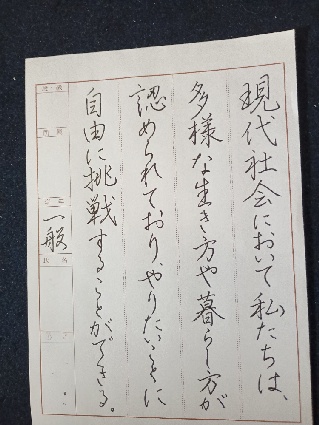 現代社会において私たちは、
多様な生き方や暮らし方が
認められており、やりたいことに
自由に挑戦することができる。
一般